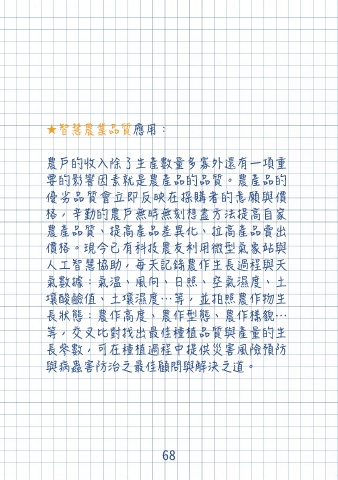 ★智慧農業品質應用：
農戶的收入除了生產數量多寡外還有一項重
要的影響因素就是農產品的品質。農產品的
優劣品質會立即反映在採購者的意願與價
格，辛勤的農戶無時無刻想盡方法提高自家
農產品質、提高產品差異化、拉高產品賣出
價格。現今已有科技農友利用微型氣象站與
人工智慧協助，每天記錄農作生長過程與天
氣數據：氣溫、風向、日照、空氣濕度、土
壤酸鹼值、土壤濕度…等，並拍照農作物生
長狀態：農作高度、農作型態、農作樣貌…
等，交叉比對找出最佳種植品質與產量的生
長參數，可在種植過程中提供災害風險預防
與病蟲害防治之最佳顧問與解決之道。
68